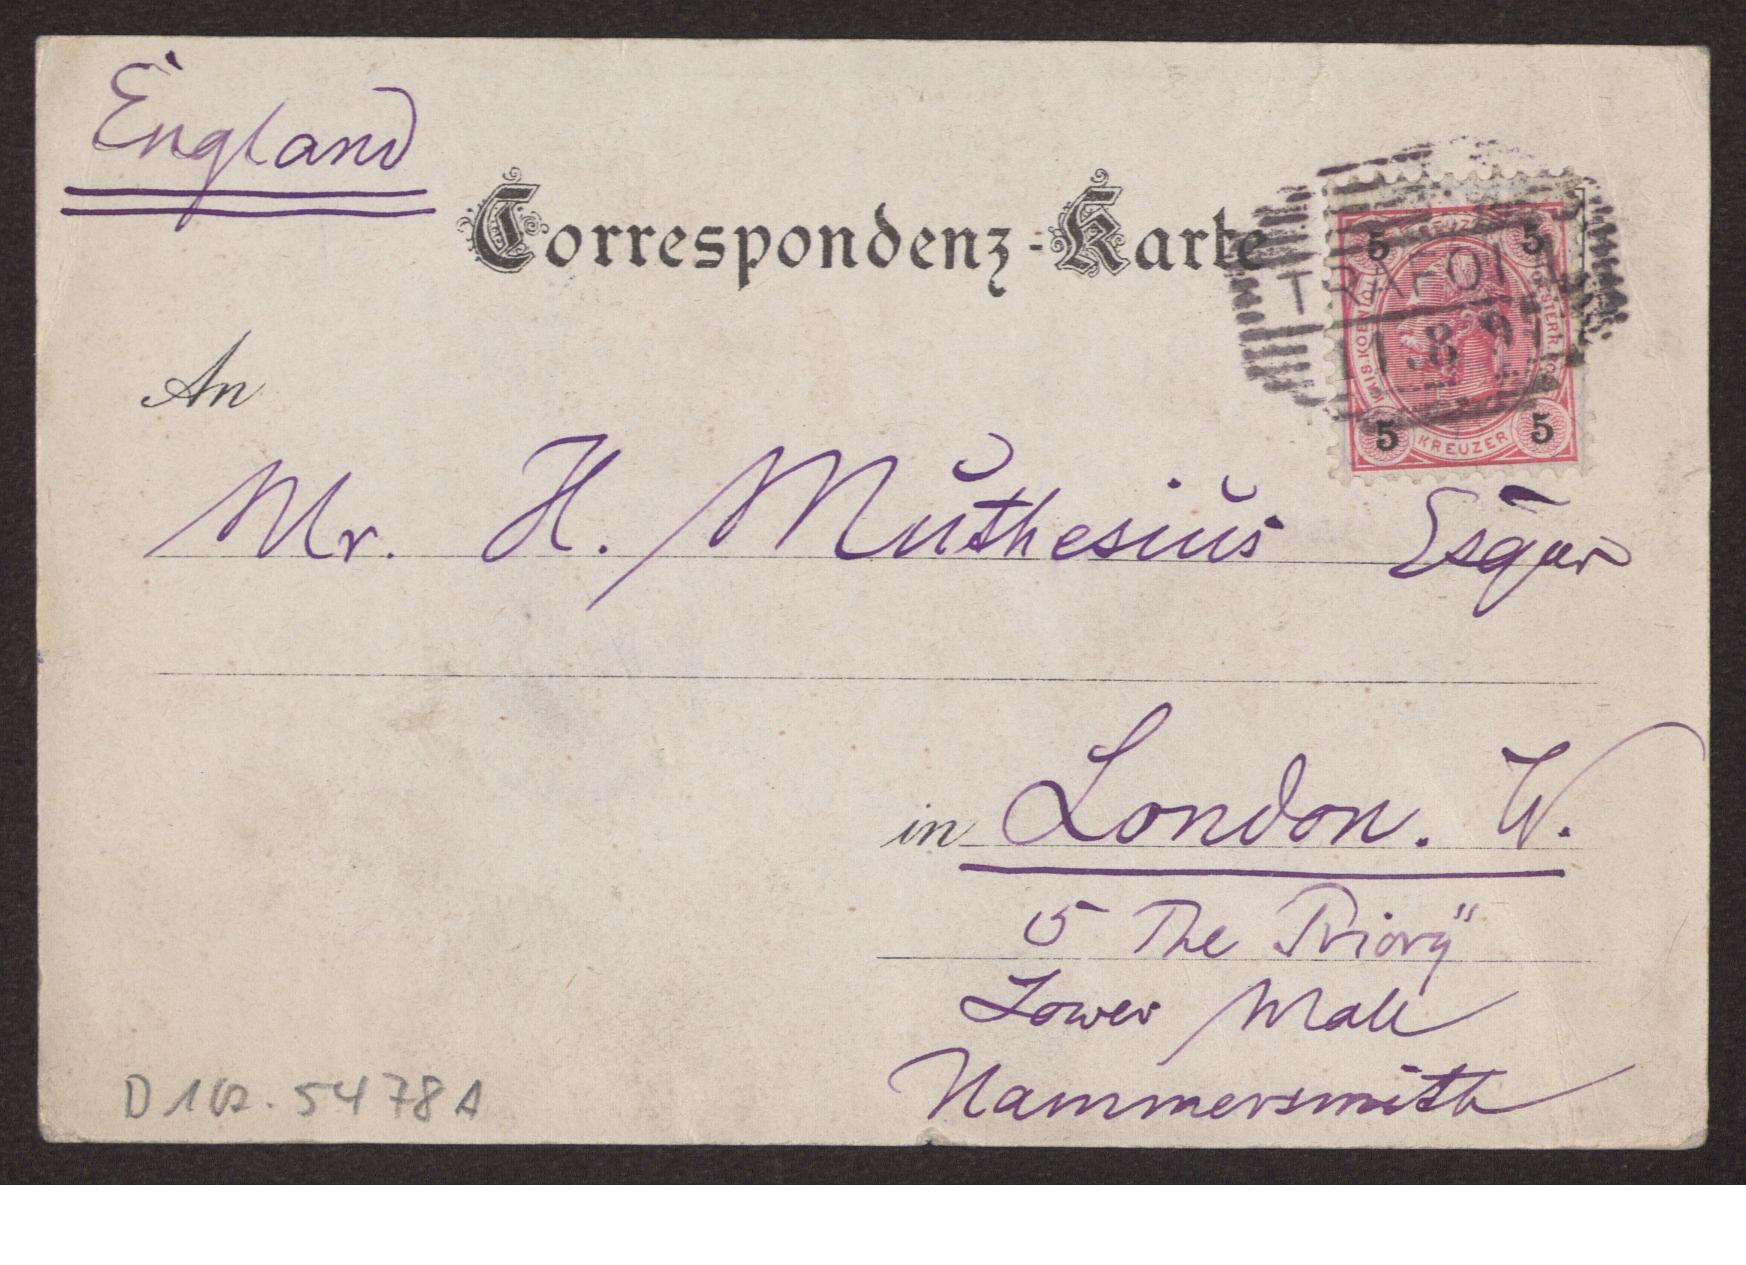 England
Correspondenz-Karte
5 KREUZER 5
TRAFOI
11.8.97
5 KREUZER 5
An
Mr. H. Muthesius Esqur
in London. W.
5 The Priory"
Lower Mall
Hammersmith
D 102. 5478A